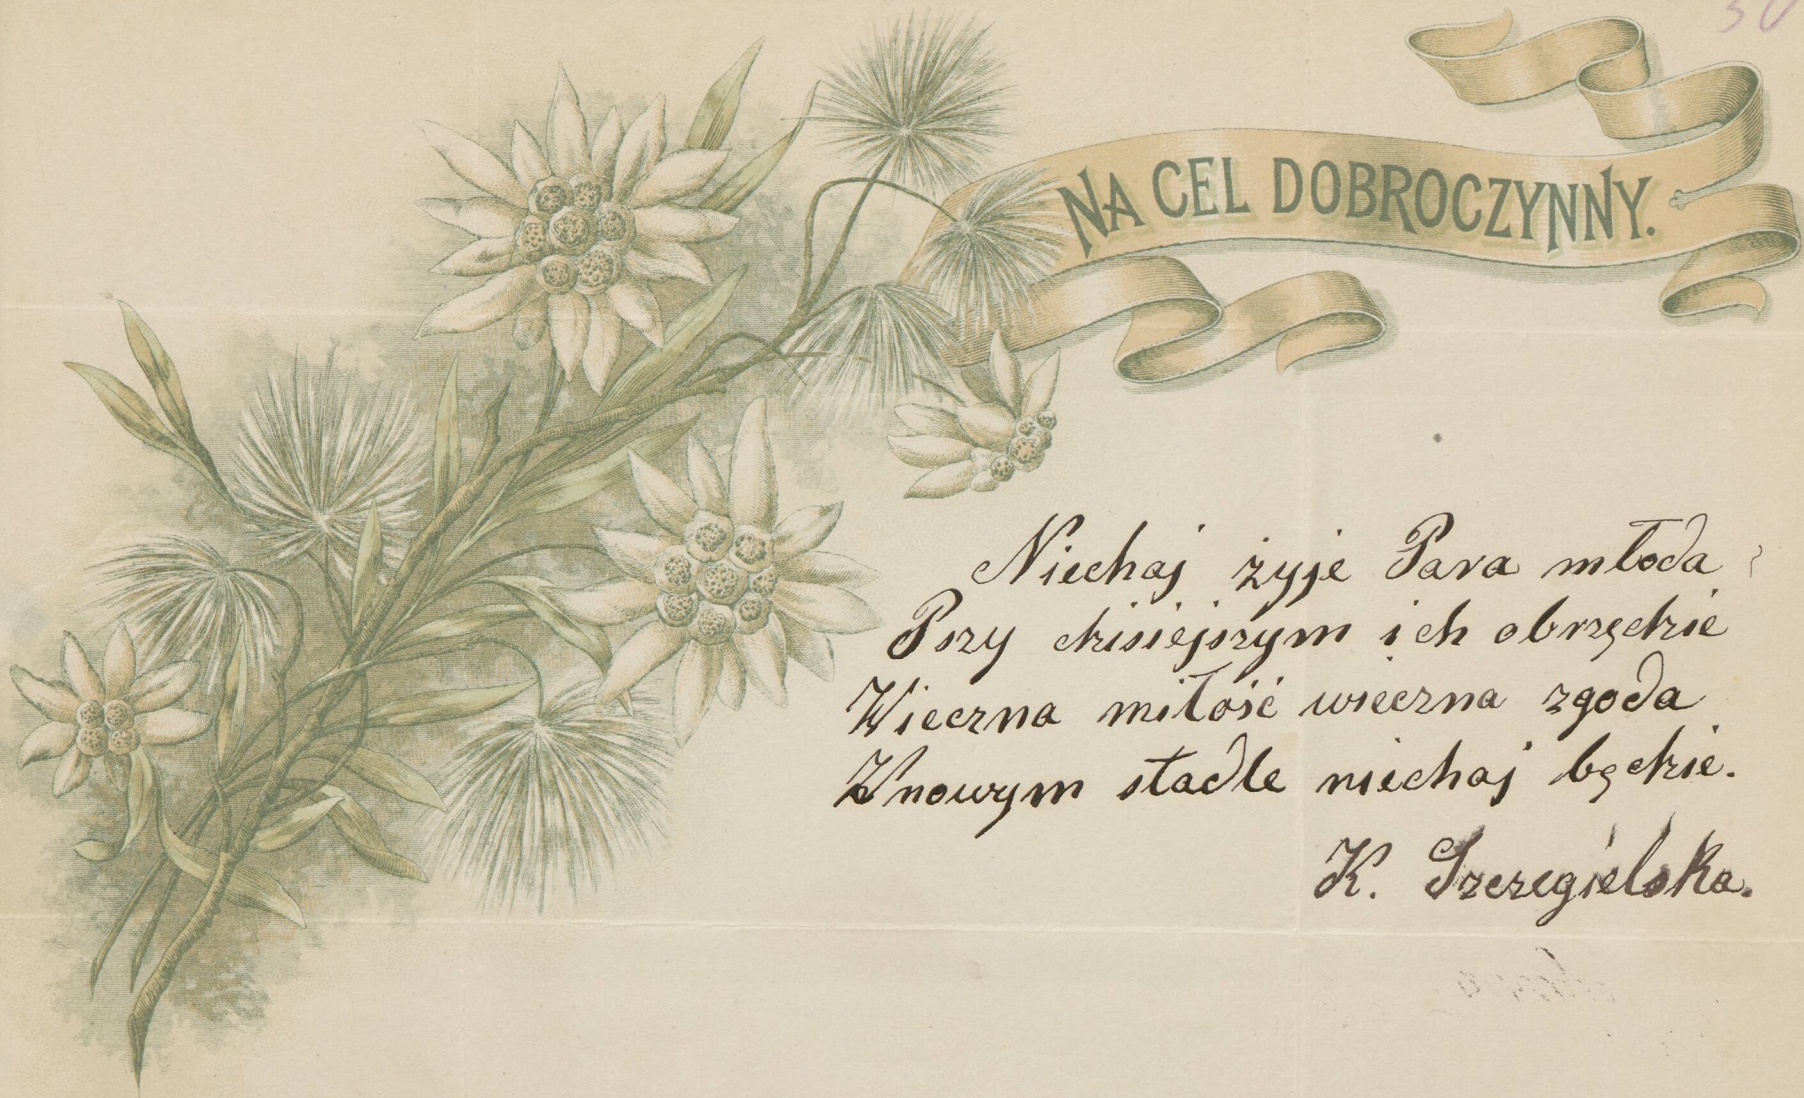 30
NA CEL DOBROCZYNNY.
Niechaj żyje Para młoda
Przy dzisiejszym ich obrzędzie
Wieczna miłość wieczna zgoda
W nowym stadle niechaj będzie.
K. Szczegielska.